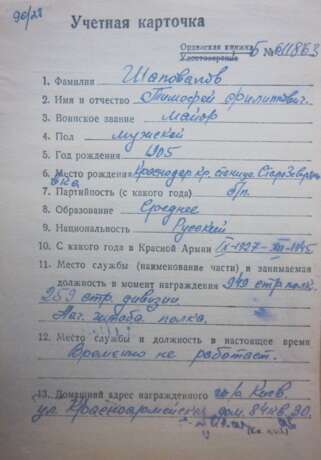 90/28
Учетная карточка
Орденская книжка
Удостоверение Б № 611863
1. Фамилия Шаповалов
2. Имя и отчество Тимофей Филиппович.
3. Воинское звание Майор
4. Пол мужской
5. Год рождения 1905
6. Место рождения Краснодар. кр. станица
7. Партийность (с какого года) б/п.
8. Образование Среднее
9. Национальность Русский
10. С какого года в Красной Армии IX-1927-XII-1945
11. Место службы (наименование части) и занимаемая
должность в момент награждения 949 стр. полк.
259 стр. дивизии.
Нач. штаба полка.
12. Место службы и должность в настоящее время
Временно не работает.
13. Домашний адрес награжденного гор. Киев.
ул. Красноармейская дом. 84 кв. 30.